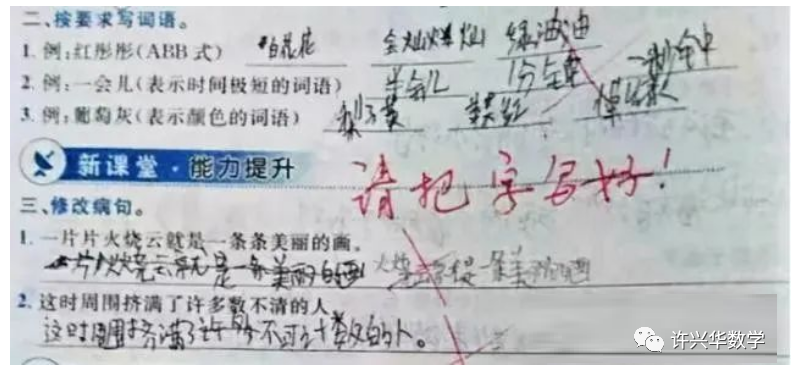 二、按要求写词语。
1. 例:红彤彤(ABB式) 白花花 金灿灿 绿油油
2. 例:一会儿(表示时间极短的词语) 半会儿 1分钟 1秒钟
3. 例:葡萄灰(表示颜色的词语) 梨子黄
新课堂·能力提升
请把字写好!
三、修改病句。
1. 一片片火烧云就是一条条美丽的画。
一片火烧云就是一条美丽的画 火烧云 是一条美丽的画
2. 这时周围挤满了许多数不清的人
这时周围挤满了许多不可计数的人。
许兴华数学